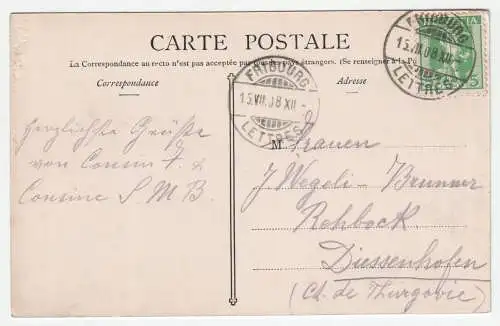 CARTE POSTALE
La Correspondance au recto n'est pas acceptée par tous les pays étrangers. (Se renseigner à la
Correspondance
Adresse
FRIBOURG
15.VII.08 XII
LETTRES
FRIBOURG
15.VII.08 XII
LETTRES
5
Herzlichste Grüsse
von Cousin F. &
Cousine S M B.
M. Frauen
J Wegeli-Brunner
Rehbock
Diessenhofen
(Ct. de Thurgovie)